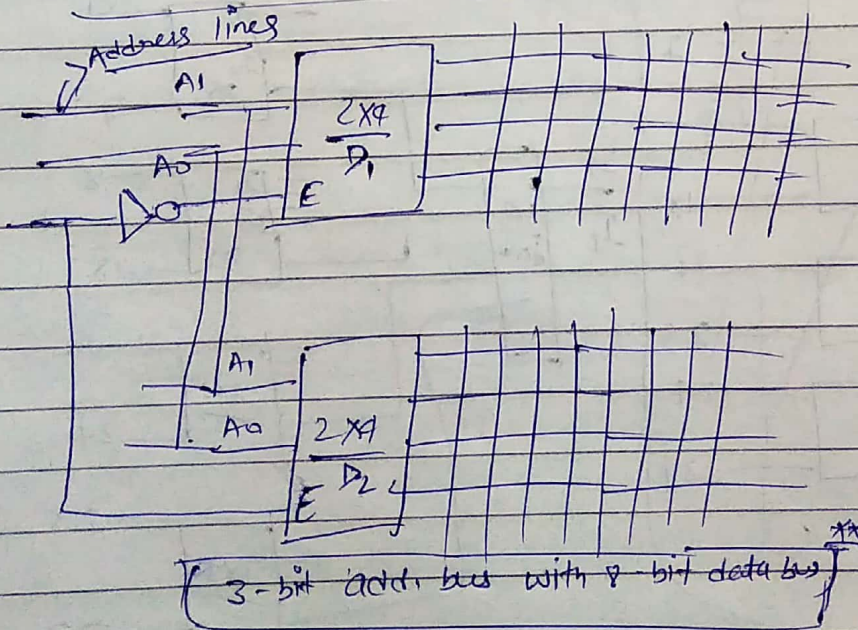 Address lines
A1
2x4
A0
D1
E
A1
A0
2x4
D2
E
**
3-bit add. bus with 8-bit data bus